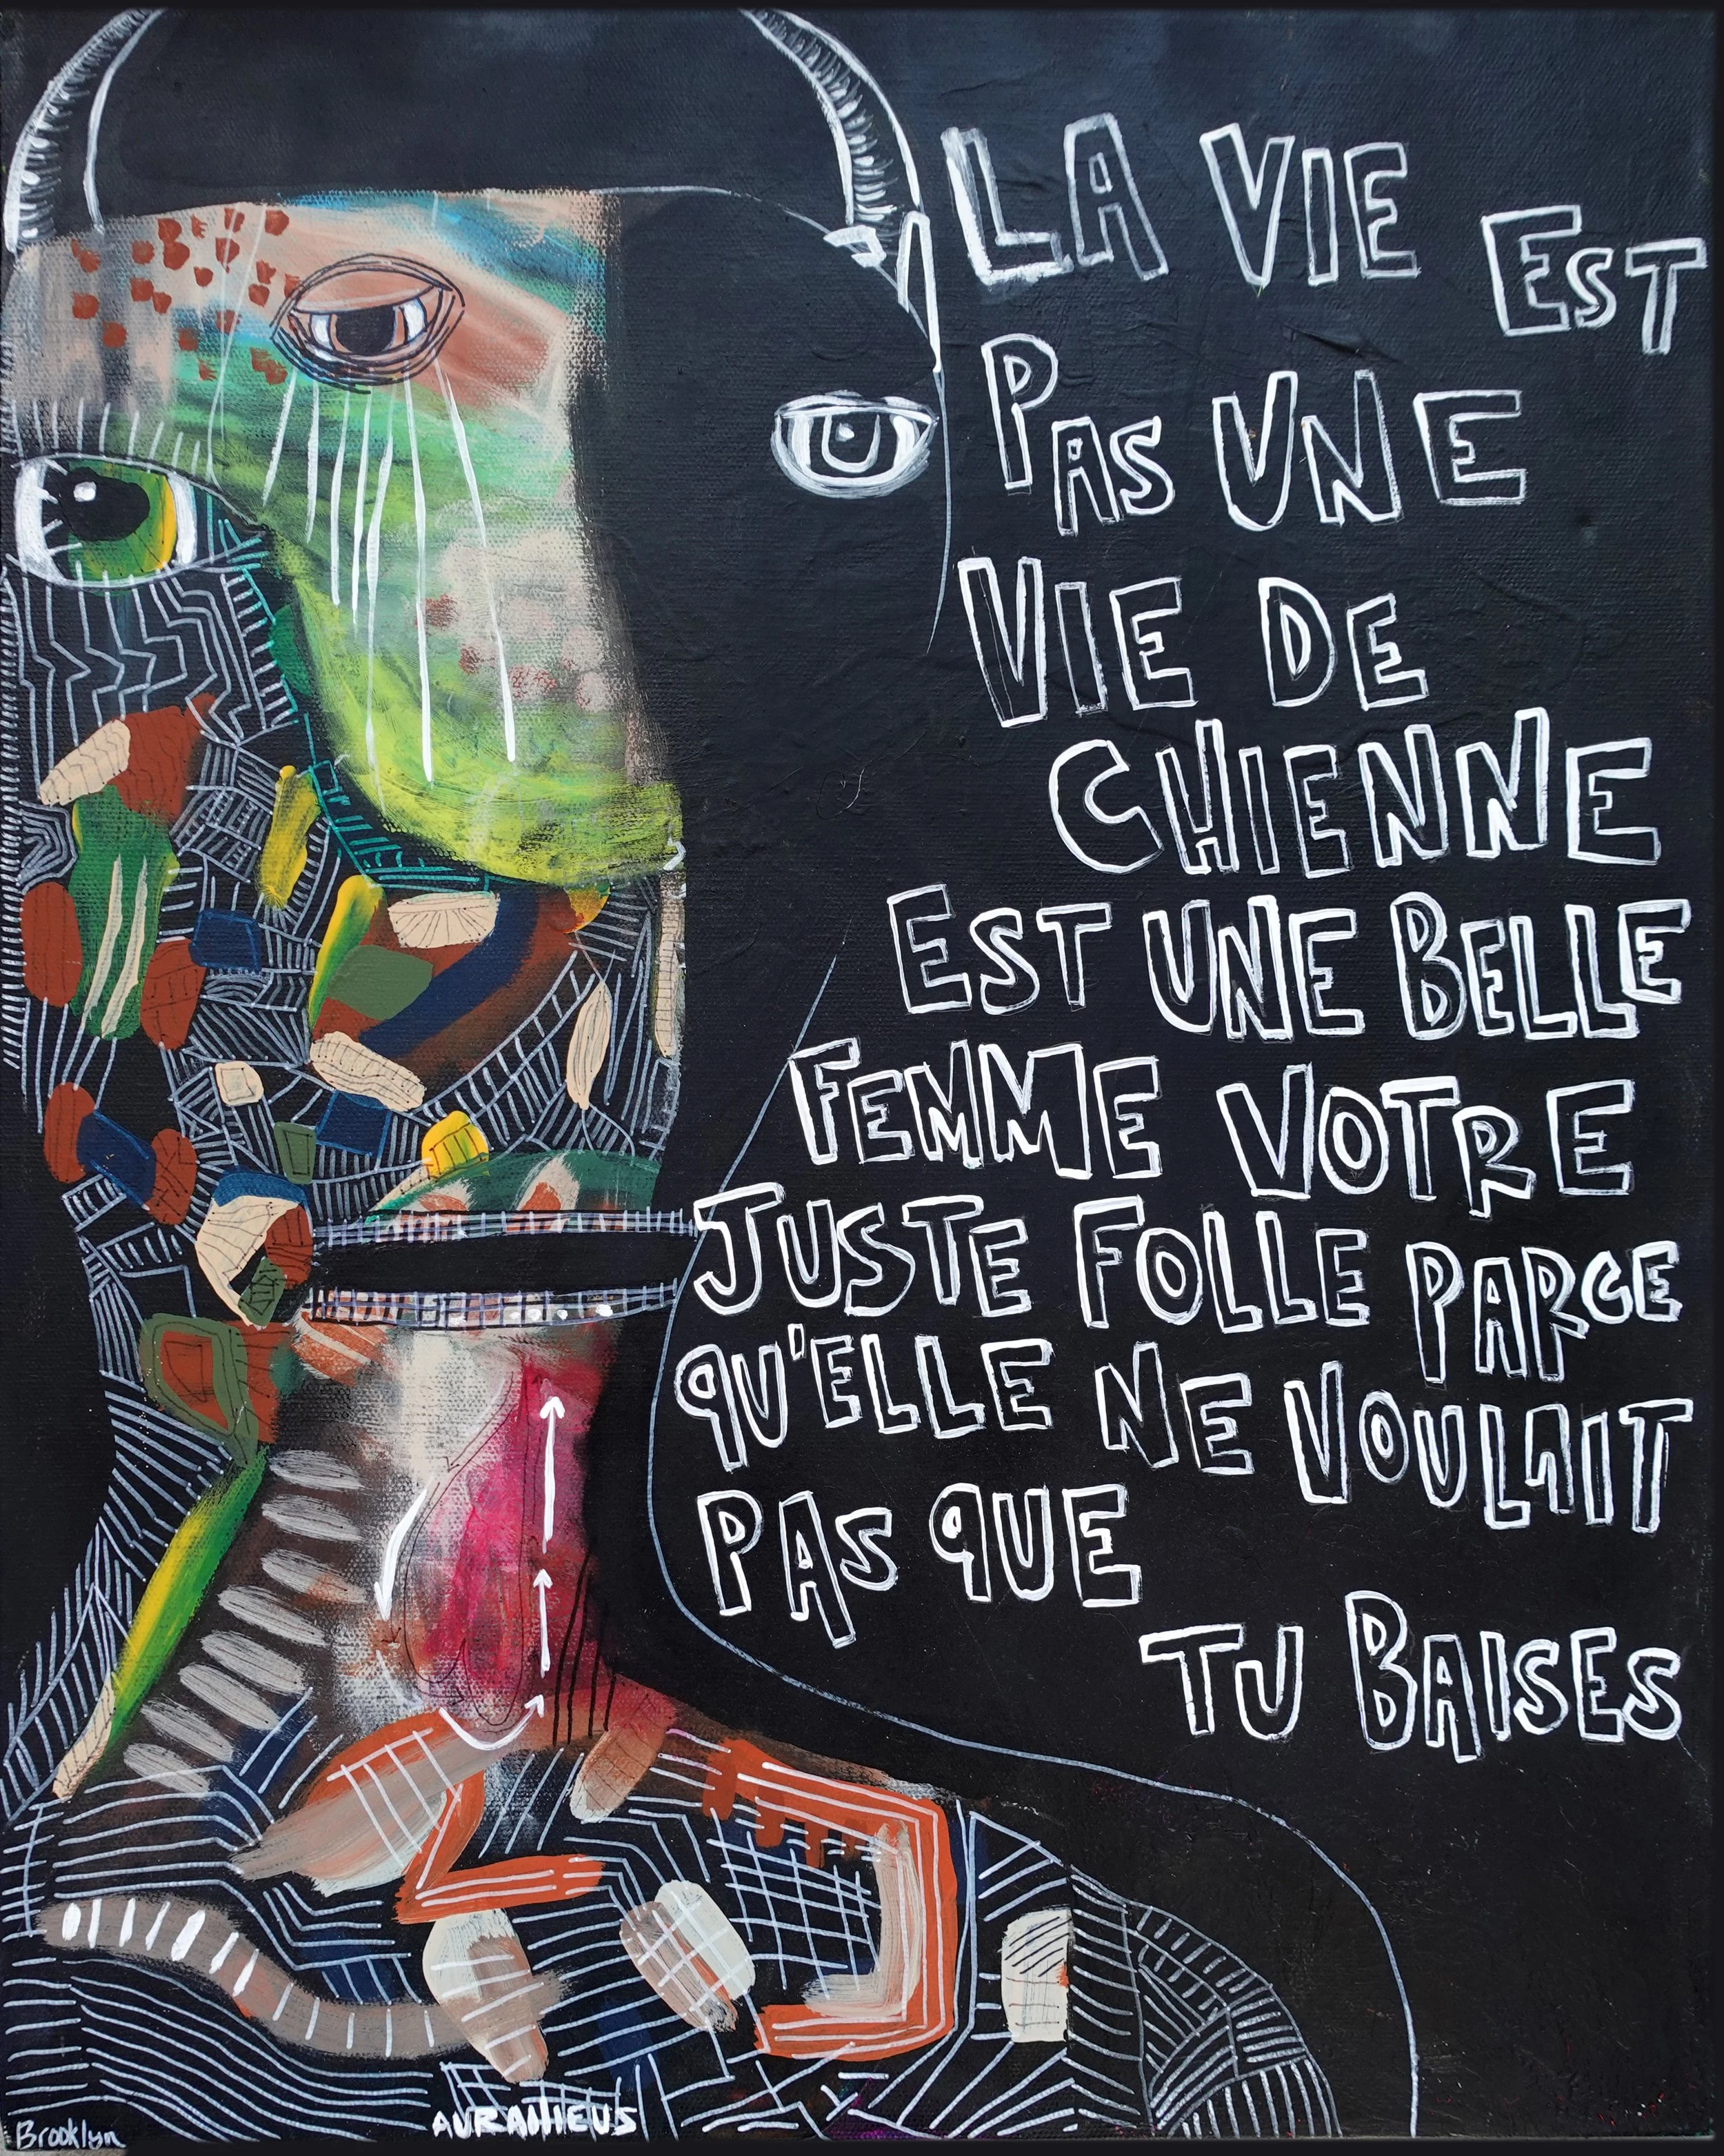 LA VIE EST
PAS UNE
VIE DE
CHIENNE
EST UNE BELLE
FEMME VOTRE
JUSTE FOLLE PARCE
QU'ELLE NE VOULAIT
PAS QUE
TU BAISES
Brooklyn